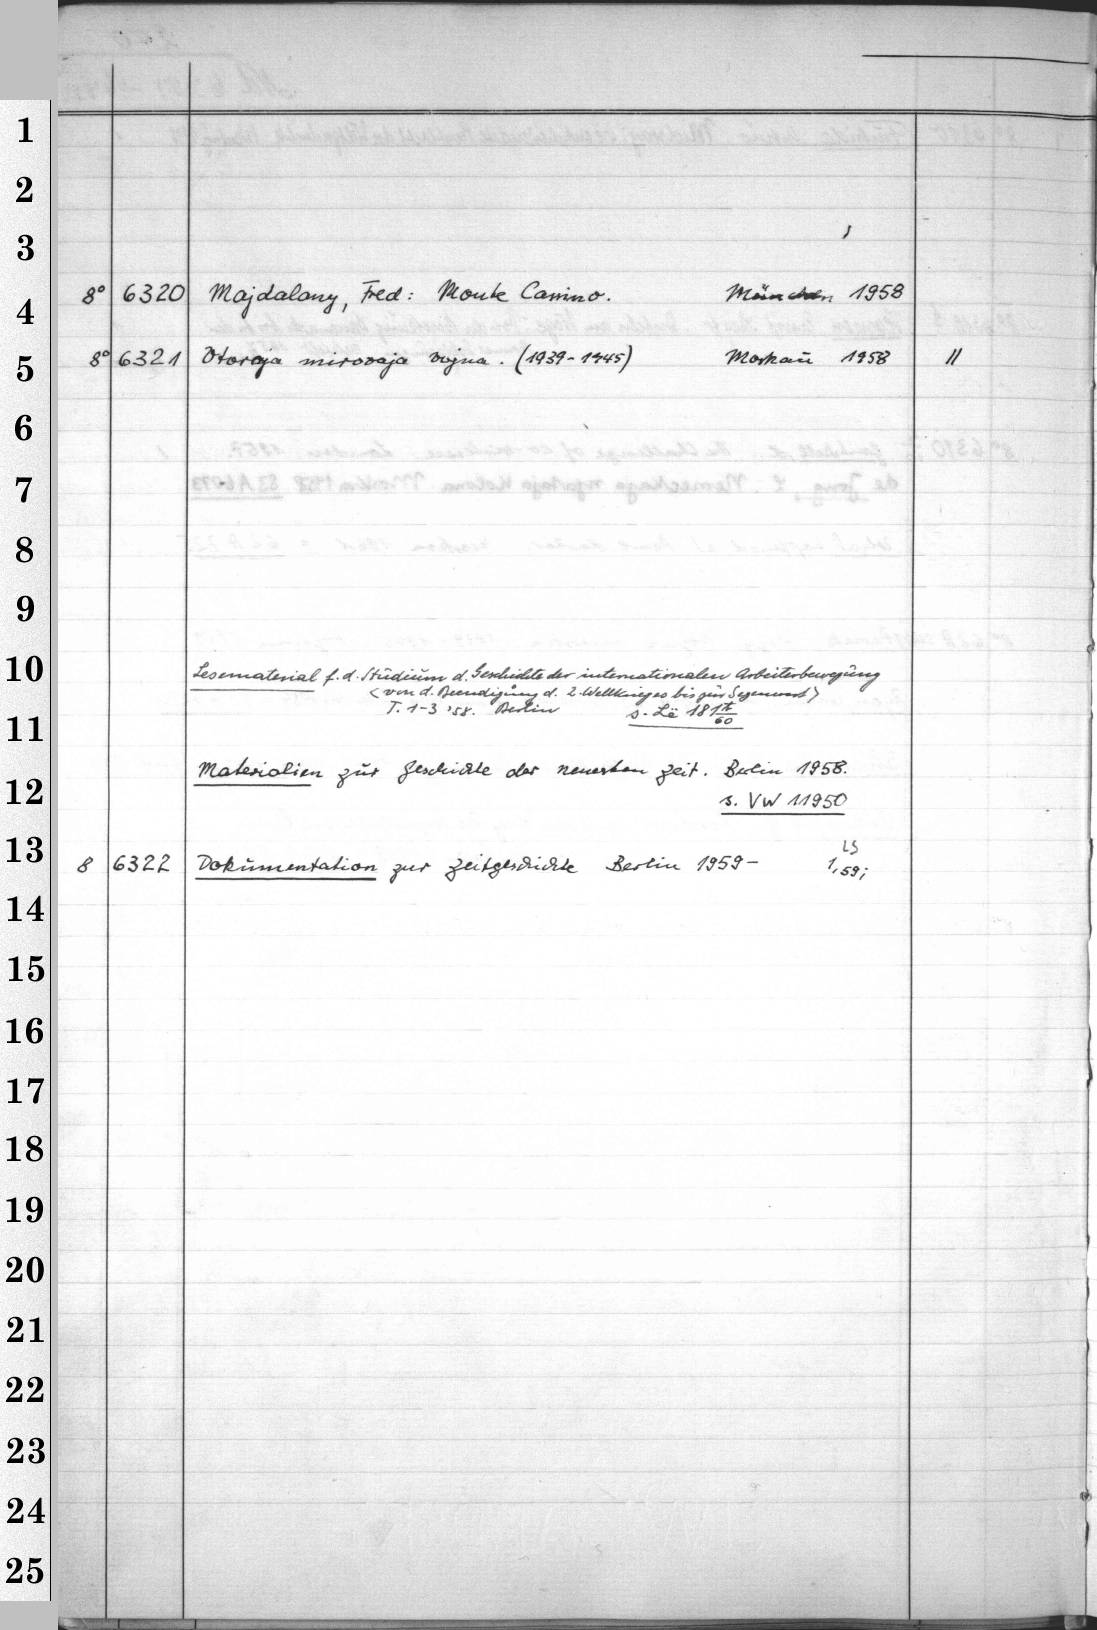 1
2
3
8° 6320 Majdalany, Fred: Monte Cassino. München 1958
4
8° 6321 Vtoraja mirovaja vojna. (1939-1945) Moskau 1958 II
5
6
7
8
9
10 Lesematerial f. d. Studium d. Geschichte der internationalen Arbeiterbewegung
<von d. Beendigung d. 2. Weltkrieges bis zur Gegenwart>
T. 1-3 '58. Berlin s. Lë 181
60
11
Materialien zur Geschichte der neuesten Zeit. Berlin 1958.
12
s. VW 11950
13 LS
8 6322 Dokumentation zur Zeitgeschichte Berlin 1959- 1,59;
14
15
16
17
18
19
20
21
22
23
24
25